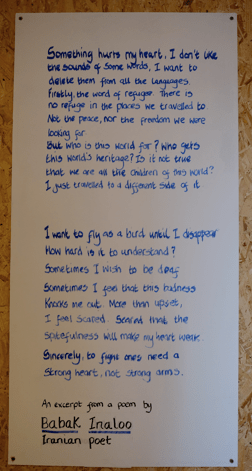 Something hurts my heart, I don't like
the sounds of some words, I want to
delete them from all the languages.
Firstly, the word of refugee. There is
no refuge in the places we travelled to
Not the peace, nor the freedom we were
looking for.
But who is this world for? Who gets
this world's heritage? Is it not true
that we are all the children of this world?
I just travelled to a different side of it
I want to fly as a bird until I disappear
How hard is it to understand?
Sometimes I wish to be deaf
Sometimes I feel that this badness
Knocks me out. More than upset,
I feel scared. Scared that the
spitefulness will make my heart weak.
Sincerely, to fight ones need a
strong heart, not strong arms.
An excerpt from a poem by
Babak Inaloo
Iranian poet